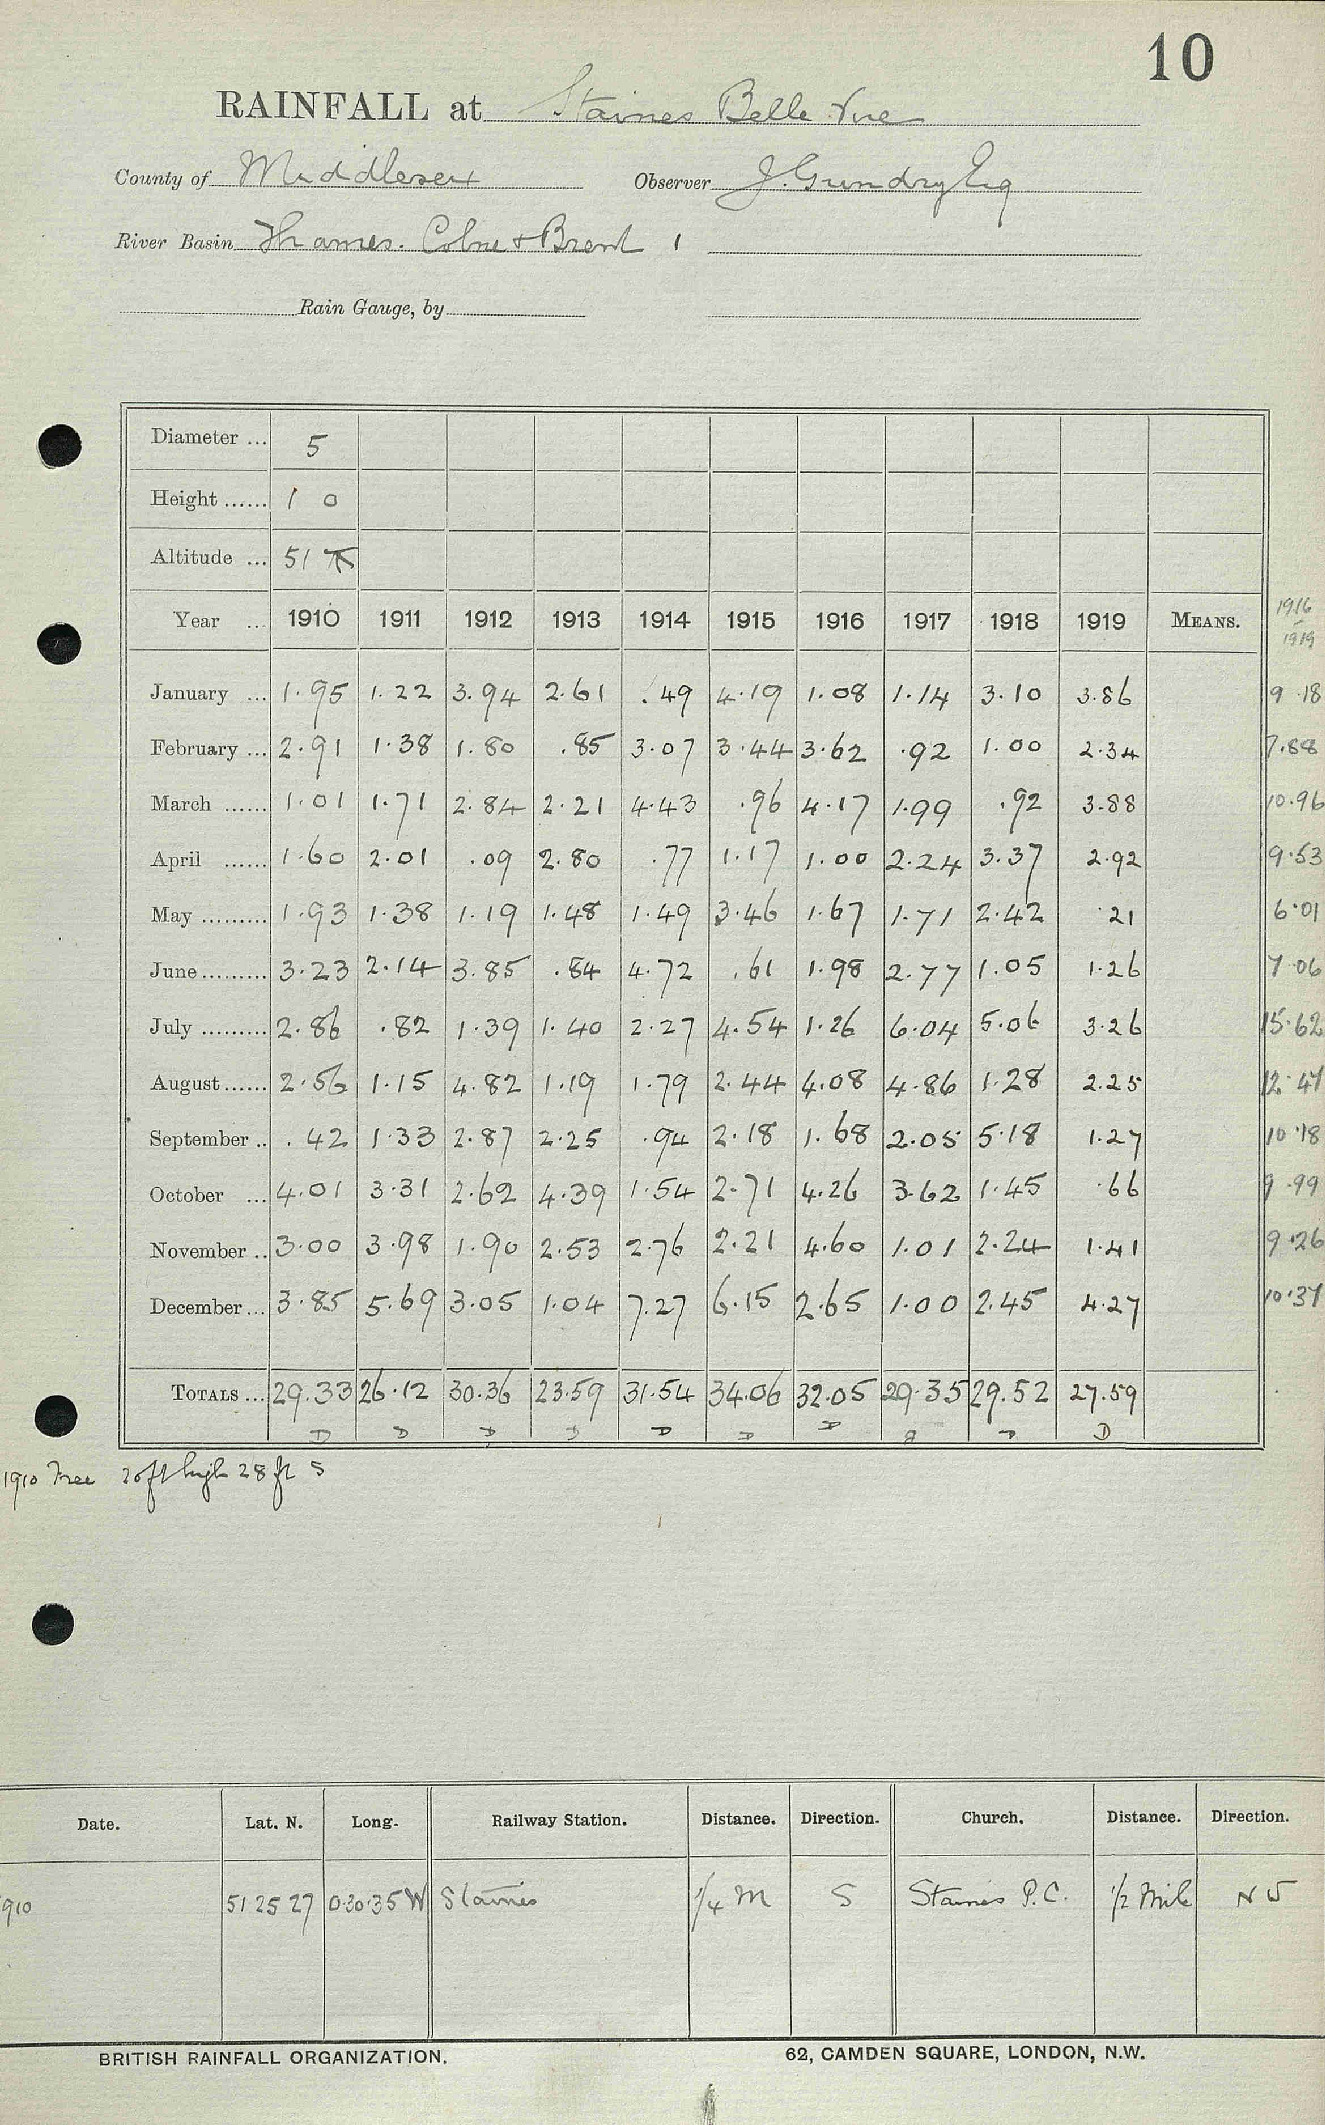 10
RAINFALL at Staines Belle Vue
County of Middlesex Observer J. Gundry Esq
River Basin Thames. Colne + Brent 1
Rain Gauge, by
Diameter ... 5
Height ...... 1 0
Altitude ... 51
Year ... 1910 1911 1912 1913 1914 1915 1916 1917 1918 1919 MEANS. 1916 - 1919
January ... 1.95 1.22 3.94 2.61 .49 4.19 1.08 1.14 3.10 3.86 9.18
February ... 2.91 1.38 1.80 .85 3.07 3.44 3.62 .92 1.00 2.34 7.88
March ...... 1.01 1.71 2.84 2.21 4.43 .96 4.17 1.99 .92 3.88 10.96
April ...... 1.60 2.01 .09 2.80 .77 1.17 1.00 2.24 3.37 2.92 9.53
May ......... 1.93 1.38 1.19 1.48 1.49 3.46 1.67 1.71 2.42 .21 6.01
June ......... 3.23 2.14 3.85 .84 4.72 .61 1.98 2.77 1.05 1.26 7.06
July ......... 2.86 .82 1.39 1.40 2.27 4.54 1.26 6.04 5.06 3.26 15.62
August ...... 2.56 1.15 4.82 1.19 1.79 2.44 4.08 4.86 1.28 2.25 12.47
September .. .42 1.33 2.87 2.25 .94 2.18 1.68 2.05 5.18 1.27 10.18
October ... 4.01 3.31 2.62 4.39 1.54 2.71 4.26 3.62 1.45 .66 9.99
November .. 3.00 3.98 1.90 2.53 2.76 2.21 4.60 1.01 2.24 1.41 9.26
December ... 3.85 5.69 3.05 1.04 7.27 6.15 2.65 1.00 2.45 4.27 10.37
TOTALS ... 29.33 26.12 30.36 23.59 31.54 34.06 32.05 29.35 29.52 27.59
D D D D D D D D D
1910 Tree 20 ft high 28 ft S
Date. Lat. N. Long. Railway Station. Distance. Direction. Church. Distance. Direction.
910 51 25 27 0.30.35 W Staines 1/4 m S Staines P.C. 1/2 Mile NW
BRITISH RAINFALL ORGANIZATION. 62, CAMDEN SQUARE, LONDON, N.W.